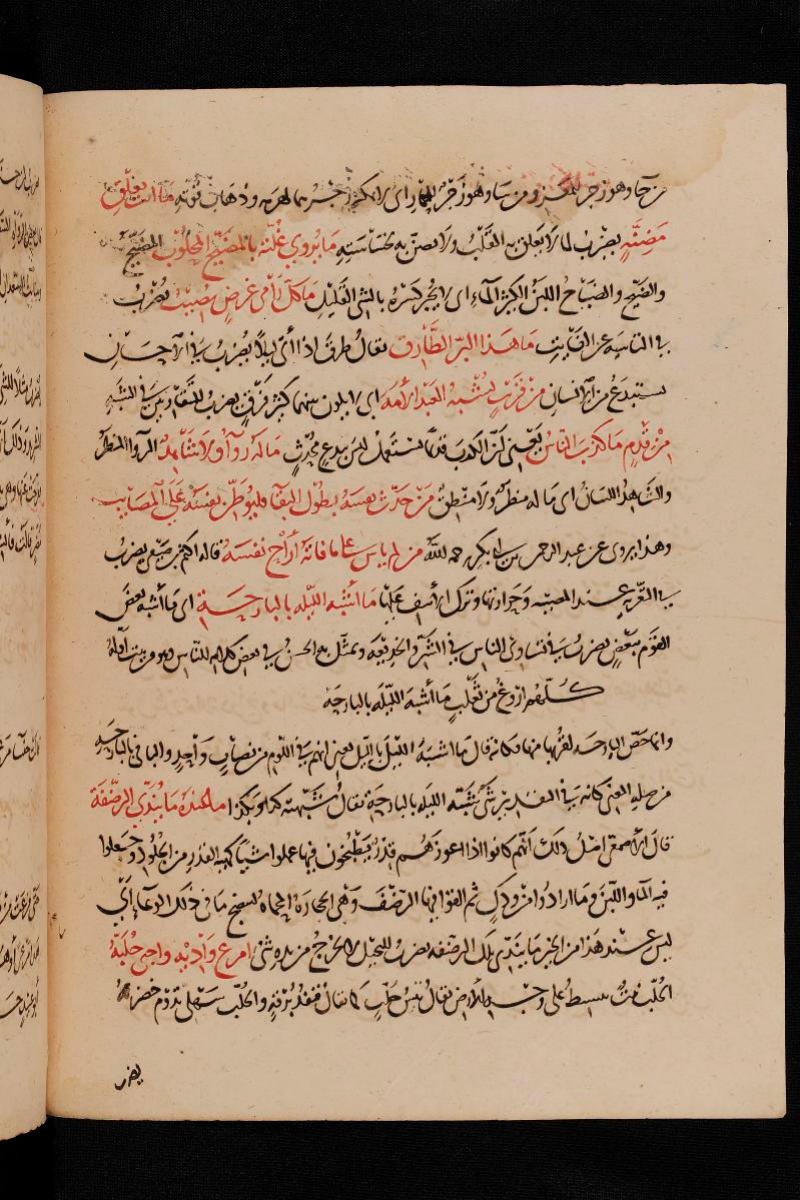 من حا وهو زجر للمعز ومن سا وهو زجر للحمار اى لا يمكن زجره لهرمه وذهاب قوته ما انت بعلق
مضنّة يضرب لما لا يعلق به القلب ولا يضنّ به لخساسته ما يروي غلّته بالمضيّح المحلوب المضيّح
والضيح والضياح اللبن الكثير الماء اى لا يجبر كسره بالشى القليل ما كل رامى غرض يصيب يضرب
فى التاسية عن الفايت ما هذا البر الطارق يقال طرق اذا اتى ليلا يضرب فى الاحسان
يستبدع من الانسان من قريب يشبه العبد الامة اى لا يكون بينهما كثير فرق يضرب للتقارب فى الشبه
من قدم ما كذب الناس يعنى ان الكذب قديما يستعمل ليس ببدع محدث ما له روآ ولا شاهد الروآ المنظر
والشاهد اللسان اى ما له منظر ولا منطق من حدّث نفسه بطول البقآ فليوطّن نفسه على المصايب
وهذا يروى عن عبد الرحمن بن ابى بكرة رحمه الله من لم ياس على ما فاته أراح نفسه قاله اكثم بن صيفى يضرب
فى التعزية عند المصيبة وحرارتها وترك الأسف عليها ما أشبه الليلة بالبارحة اى ما أشبه بعض
القوم ببعض يضرب فى تساوى الناس فى الشر والخديعة وتمثّل به الحسن فى بعض كلامه للناس وهو من بيت أوله
كلهم اروغ من ثعلب ما أشبه الليلة بالبارحة
وانما خص البارحة لقربها منها فكانه قال ما اشبه الليل بالليل يعنى انهم فى اللوم من نصاب واحد والبا فى بالبارحة
من صلة المعنى كانه فى التقدير شئ شبّه الليلة بالبارحة يقال شبّهته كذا وبكذا ما عنده ما يندّي الرضفة
قال الأصمعى اصل ذلك انهم كانوا اذا اعوزهم قدر يطبخون فيها عملوا شيئا كهية القدر من الجلود وجعلوا
فيه الماء واللبن وما ارادوا من ودك ثم القوا فيها الرضف وهى الحجارة المحماة لينضج ما فى ذلك الوعاء اى
ليس عنده هذا من الخير ما يندّى تلك الرضفة يضرب للبخيل لا يخرج من يده شئ امرع واديه واجنى حلّبه
الحلّب نبت ينبسط على وجه الأرض يقال تيس حلّب كما يقال قنفذ برقة والحلب سهلى تدوم خضرته
يضرب